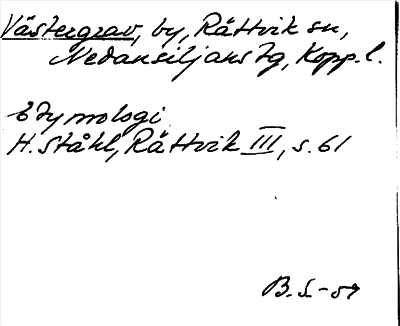 Västergrav, by, Rättvik sn,
Nedansiljans tg, Kopp. l.
Etymologi
H. Ståhl, Rättvik III, s. 61
B. S-57